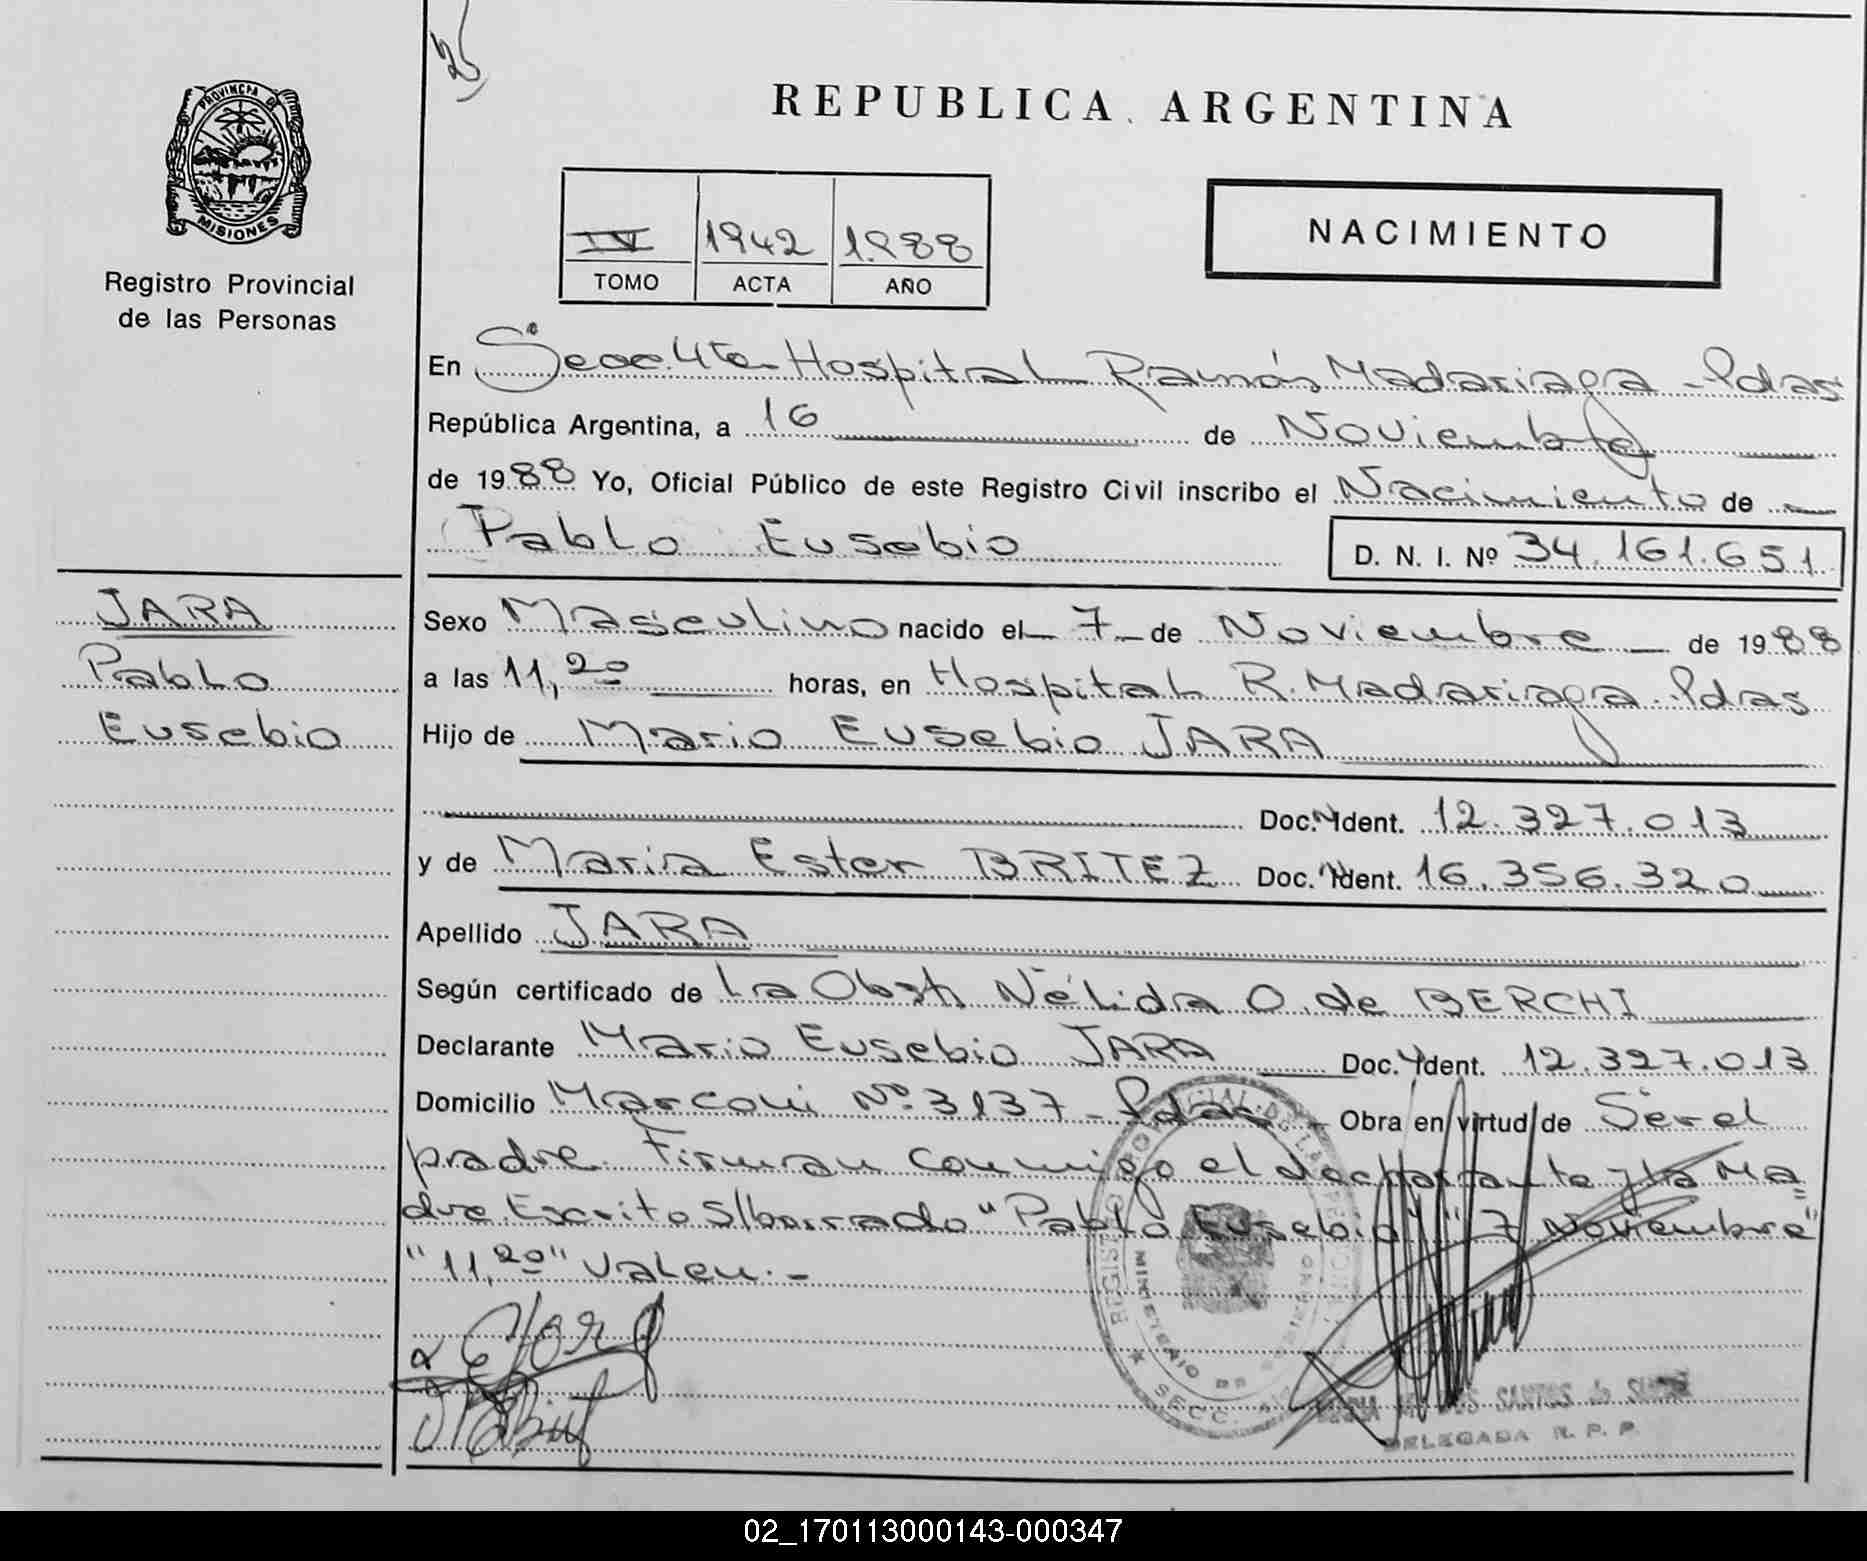 PROVINCIA DE
MISIONES
Registro Provincial
de las Personas
REPUBLICA ARGENTINA
IV 1942 1.988
TOMO ACTA AÑO
NACIMIENTO
En Secc. 4ta Hospital Ramón Madariaga - Pdas
República Argentina, a 16 de Noviembre
de 1988 Yo, Oficial Público de este Registro Civil inscribo el Nacimiento de
Pablo Eusebio D. N. I. Nº 34.161.651
JARA
Pablo
Eusebio
Sexo Masculino nacido el 7 de Noviembre de 1988
a las 11,20 horas, en Hospital R. Madariaga. Pdas
Hijo de Mario Eusebio JARA
Doc. Ident. 12.327.013
y de Maria Ester BRITEZ Doc. Ident. 16.356.320
Apellido JARA
Según certificado de La Obst. Nélida O. de BERCHI
Declarante Mario Eusebio JARA Doc. Ident. 12.327.013
Domicilio Marconi Nº 3137 - Pdas - Obra en virtud de Ser el
padre. Firman conmigo el declarante y la Ma=
dre. Escrito s/borrado "Pablo Eusebio" "7 Noviembre"
"11,20" Valen.-
REGISTRO PROVINCIAL DE LAS PERSONAS
MINISTERIO DE GOBIERNO
SECC. 4
SANTOS de
DELEGADA R. P. P.
02_170113000143-000347